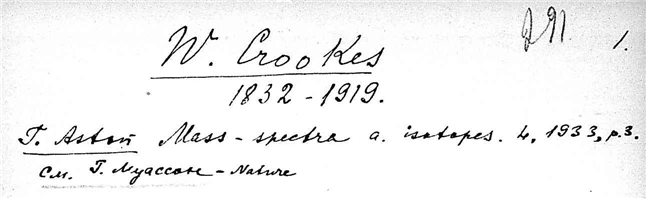 291 1.
W. Crookes
1832 - 1919.
Aston Mass-spectra a. isotopes. L, 1933, p.3.
См. Г. Муассон - Nature